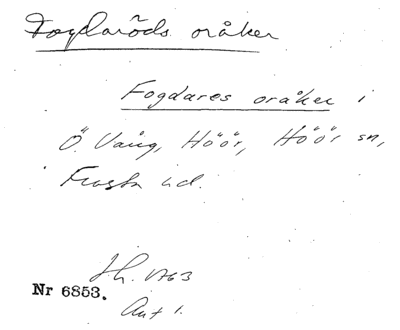 Fogdaröds oråker
Fogdares oråker i
Ö. Vång, Höör, Höör sn,
Frosta hd.
Nr 6853.
Akt 1.